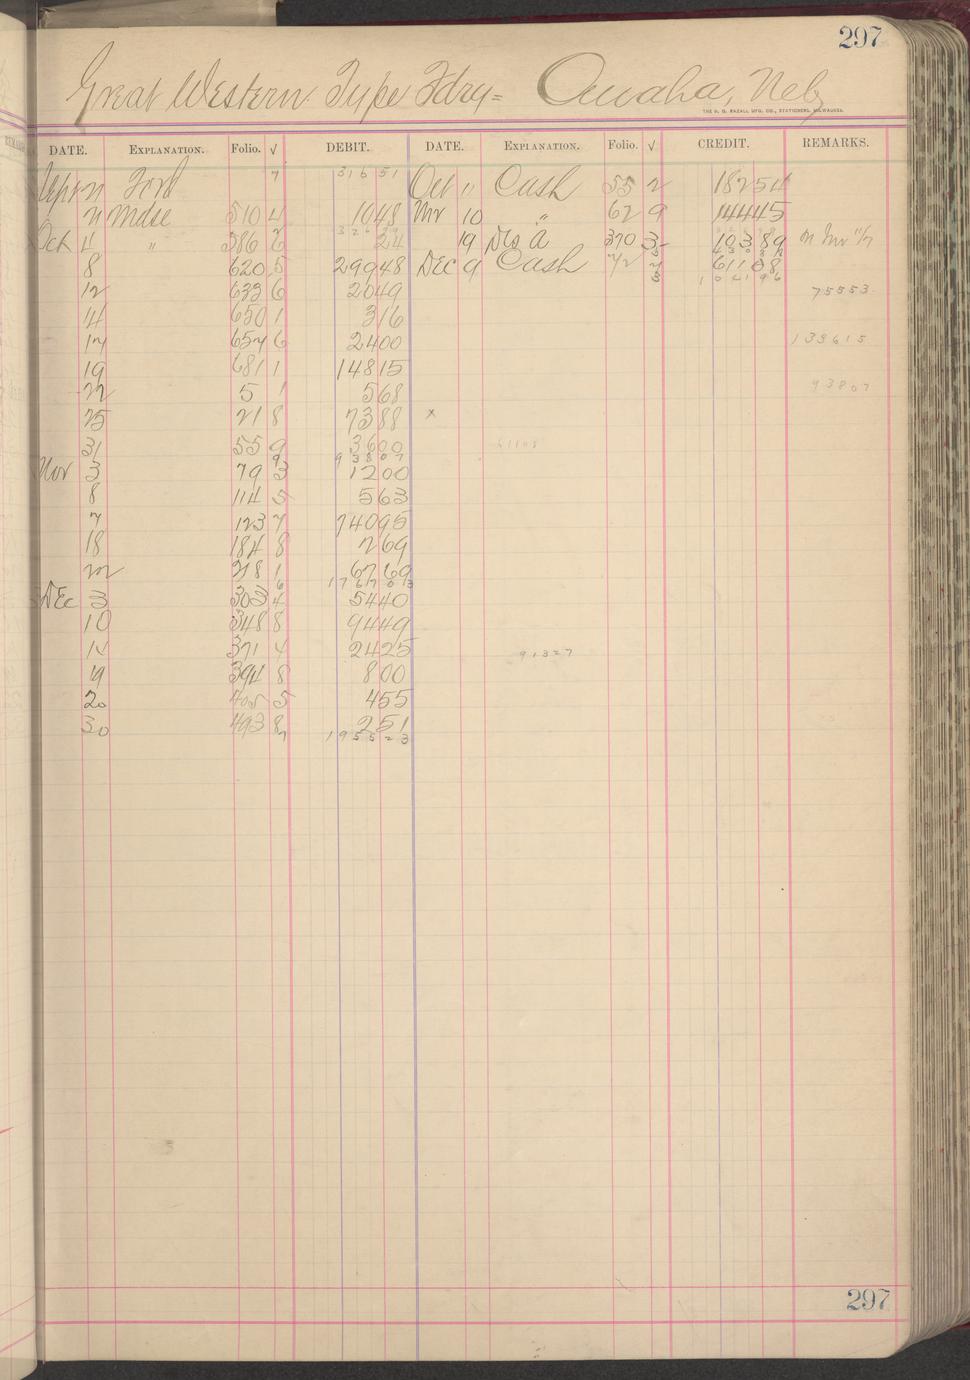 297
Great Western Type Fdry= Omaha, Neb
THE H. G. RAZALL MFG. CO., STATIONERS, MILWAUKEE.
DATE. EXPLANATION. Folio. √ DEBIT. DATE. EXPLANATION. Folio. √ CREDIT. REMARKS.
Ford 7 31651 Oct " Cash 55 2 18254
Mdse 510 4 1048 Nov 10 " 62 9 14445
Oct 4 " 586 6 24 19 Ds a 370 3 10389
8 620 5 29948 Dec 9 Cash 72 61108
12 633 6 2049 75553
14 650 1 316
17 657 6 2400 133615
19 681 1 14815
22 5 1 568 93807
25 21 8 7388 x
31 55 9 3600 61108
93807
Nov 3 79 3 1200
8 114 5 563
7 123 7 74095
18 184 8 269
22 218 1 6769
176703
Dec 3 303 4 5440
10 348 8 9449
12 371 4 2425 91327
19 394 8 800
20 405 5 455
30 493 8 251
7 195523
297